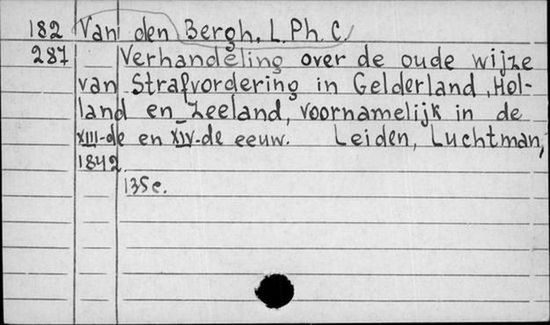 182 Van den Bergh, L. Ph. C.
287 Verhandeling over de oude wijze
van Strafvordering in Gelderland, Hol-
land en Zeeland, voornamelijk in de
XIII-de en XIV-de eeuw. Leiden, Luchtman,
1842.
135 c.